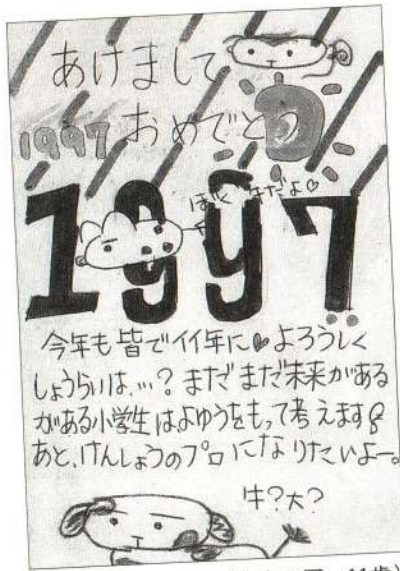 あけまして
1997 おめでとう
1997
ぼく まだよ♡
今年も皆でイイ年に♥よろうしく
しょうらいは、…? まだまだ未来がある
がある小学生はよゆうをもって考えます
あと、けんしょうのプロになりたいよー。
牛?犬?
11歳)